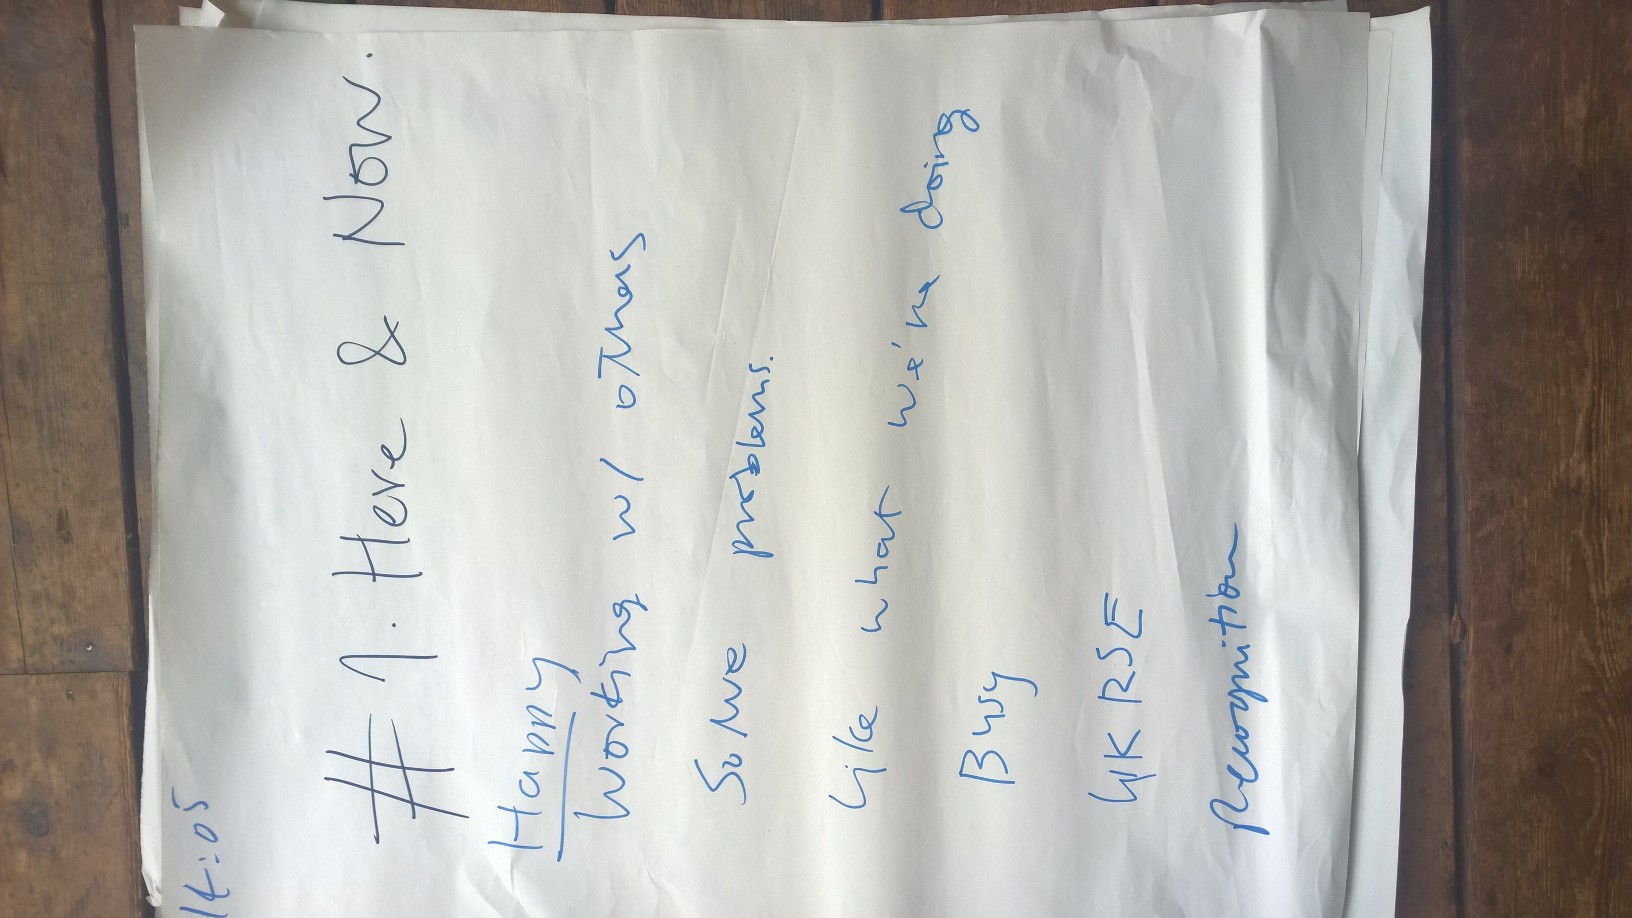 14:05
#1. Here & Now.
Happy
Working w/ others
Solve problems.
Like what we're doing
Busy
UKRSE
Recognition